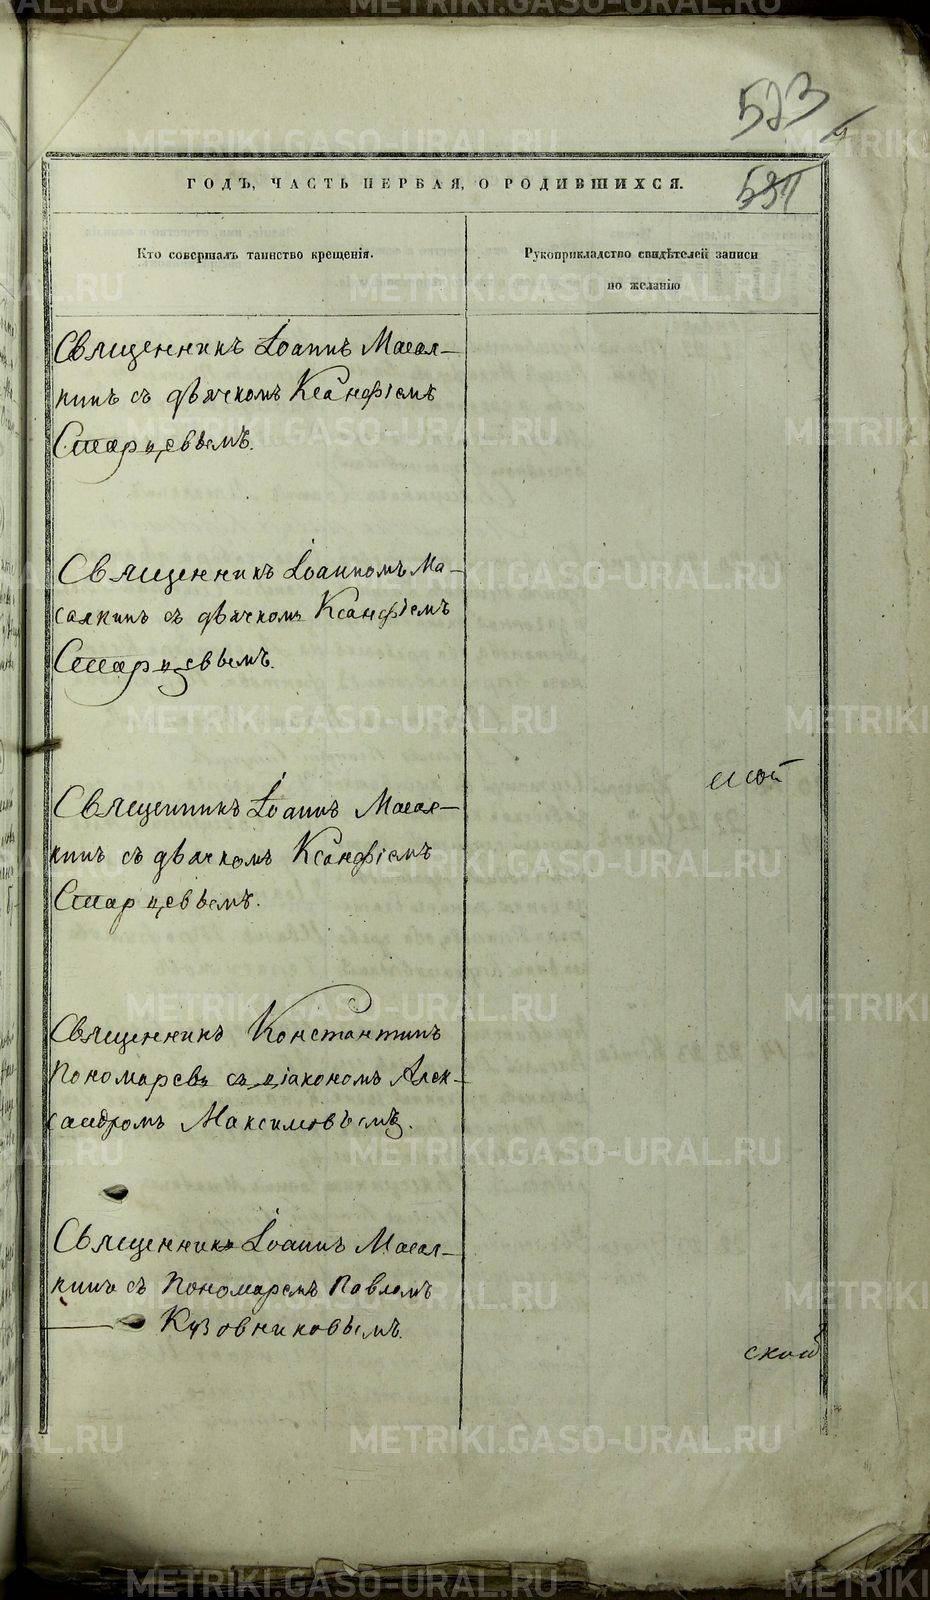 523
531
ГОДЪ, ЧАСТЬ ПЕРВАЯ, О РОДИВШИХСЯ.
Кто совершалъ таинство крещенія.
Рукоприкладство свидѣтелей записи
по желанію
Священникъ Іоаннъ Масал-
кинъ съ дьячкомъ Ксанфіемъ
Старцевымъ.
Священникъ Іоанномъ Ма-
салкинъ съ дьячкомъ Ксанфіемъ
Старцевымъ.
Священникъ Іоаннъ Масал-
кинъ съ дьячкомъ Ксанфіемъ
Старцевымъ.
Священникъ Константинъ
Пономаревъ съ діакономъ Алек-
сандромъ Максимовымъ.
Священникъ Іоаннъ Масал-
кинъ съ Пономаремъ Павломъ
Кузовниковымъ.
ской
METRIKI.GASO-URAL.RU